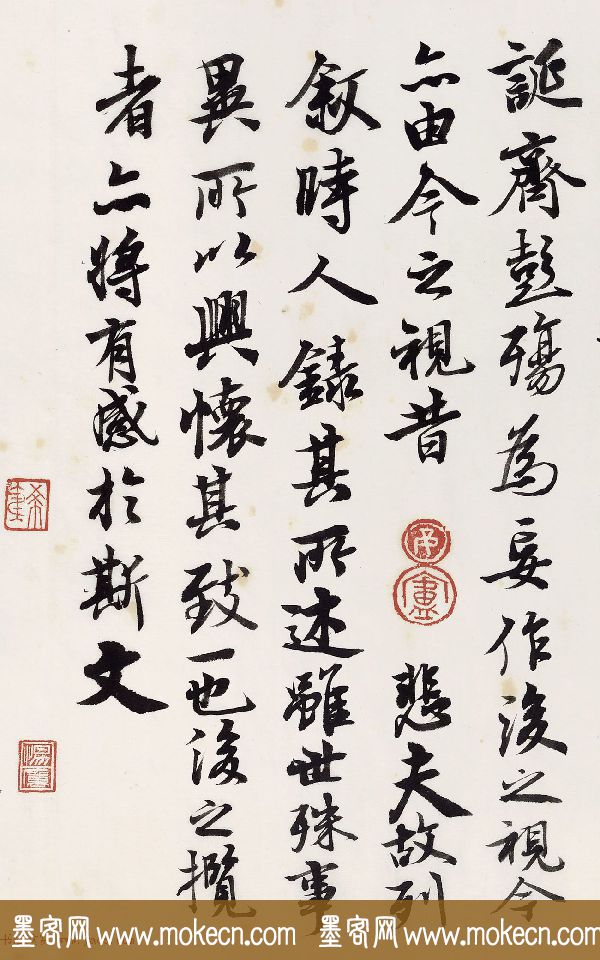 誕齊彭殤為妄作後之視今
亦由今之視昔 悲夫故列
叙時人錄其所述雖世殊事
異所以興懷其致一也後之攬
者亦將有感於斯文
墨客网 www.mokecn.com 墨客网 www.mokecn.com